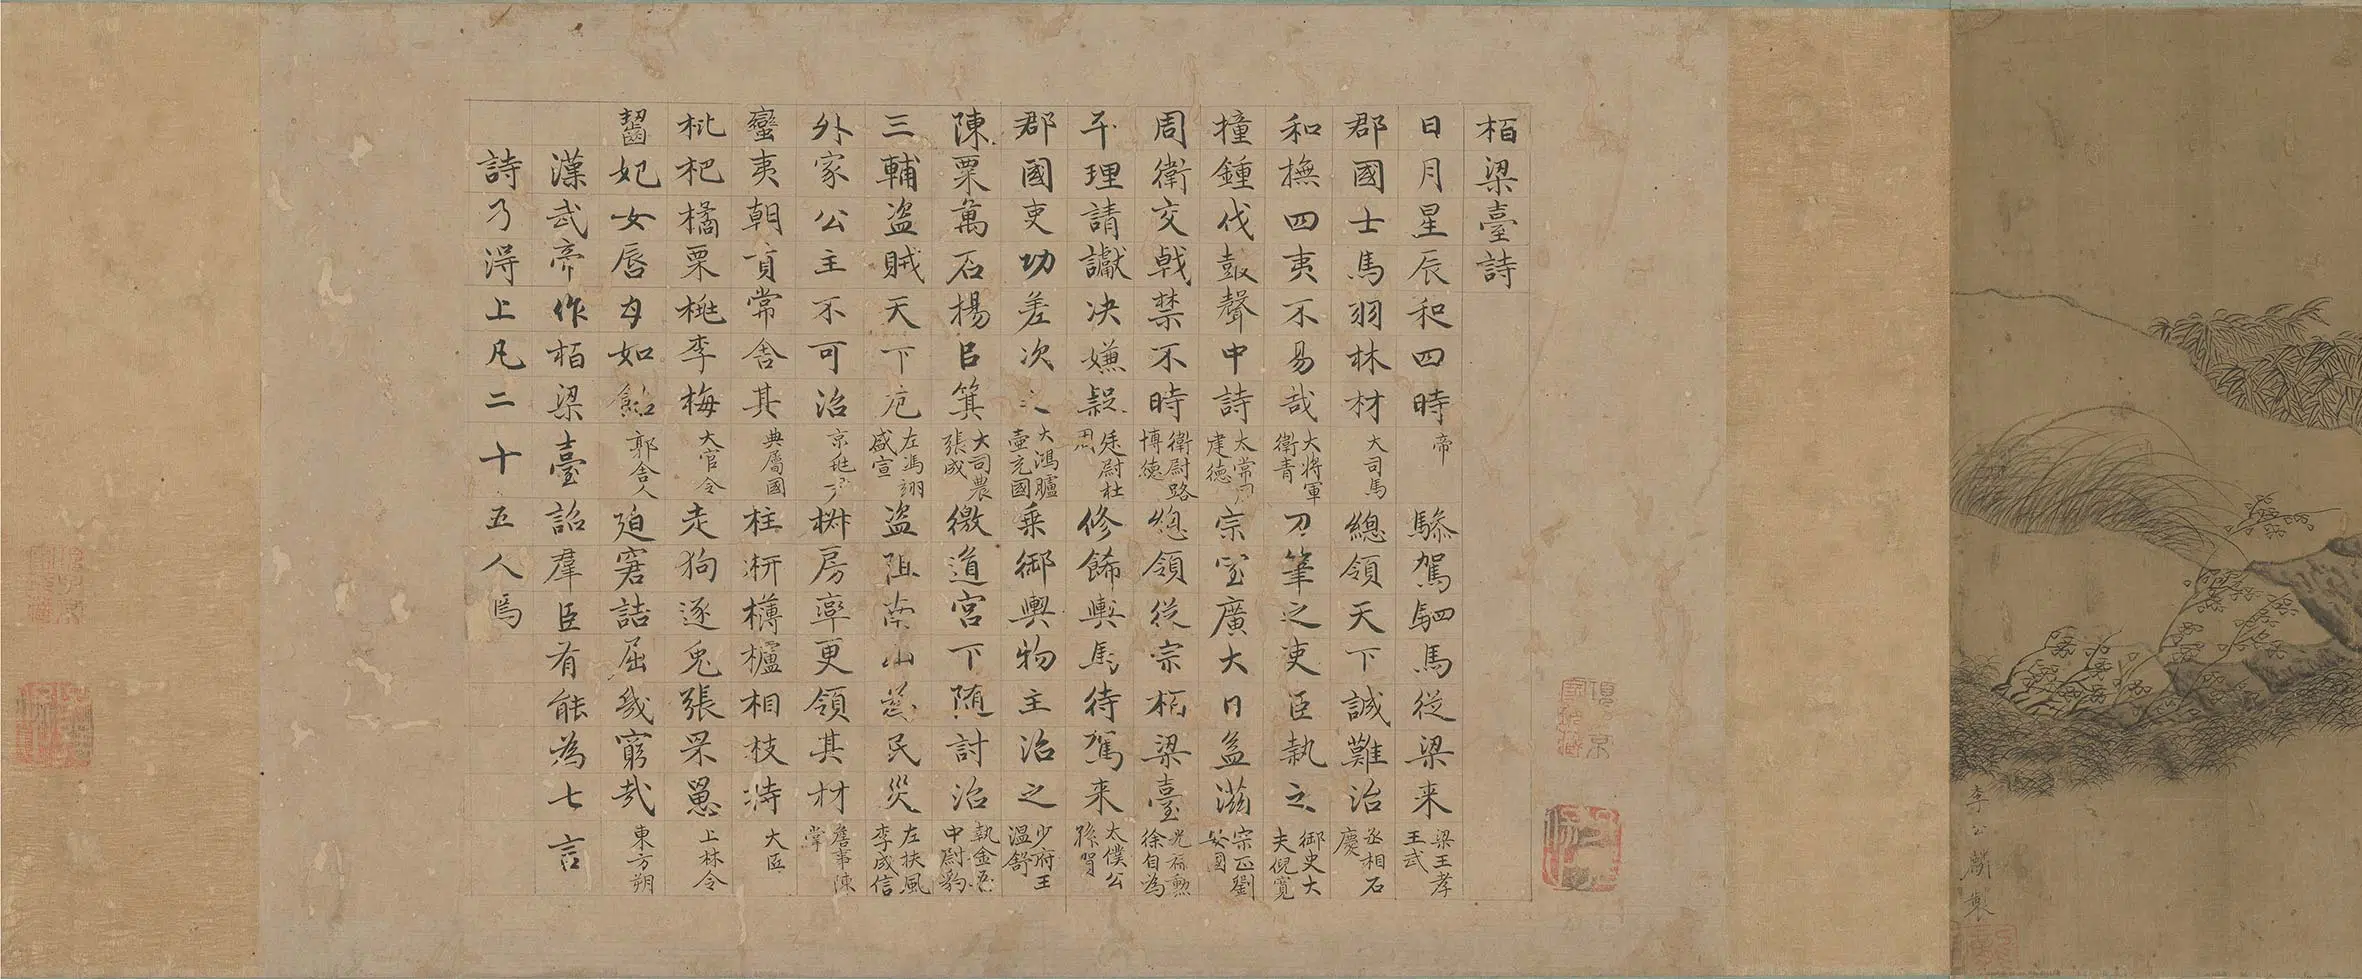 李公麟製
栢梁臺詩
日月星辰和四時帝驂駕駟馬從梁来梁王孝王武
郡國士馬羽林材大司馬總領天下誠難治丞相石慶
和撫四夷不易哉大將軍衛青刀筆之吏臣執之御史大夫倪寬
撞鍾伐鼓聲中詩太常周建德宗室廣大日益滋宗正劉安國
周衛交戟禁不時衛尉路博德總領從宗栢梁臺光祿勲徐自為
平理請讞决嫌疑廷尉杜周修飾輿馬待駕来太僕公孫賀
郡國吏功差次之大鴻臚壷充國乗御輿物主治之少府王温舒
陳粟萬石楊㠯箕大司農張成徼道宮下随討治執金吾中尉豹
三輔盗賊天下危左馮翊盛宣盗阻南山為民災左扶風李成信
外家公主不可治京兆尹椒房率更領其材詹事陳掌
蠻夷朝貢常舎其典屬國柱枅欂櫨相枝持大匠
枇杷橘栗桃李梅大官令走狗逐兎張罘罳上林令
齧妃女唇甘如飴郭舎人廹窘詰屈㡬窮㢤東方朔
漢武帝作栢梁臺詔羣臣有能為七言
詩乃得上凡二十五人焉